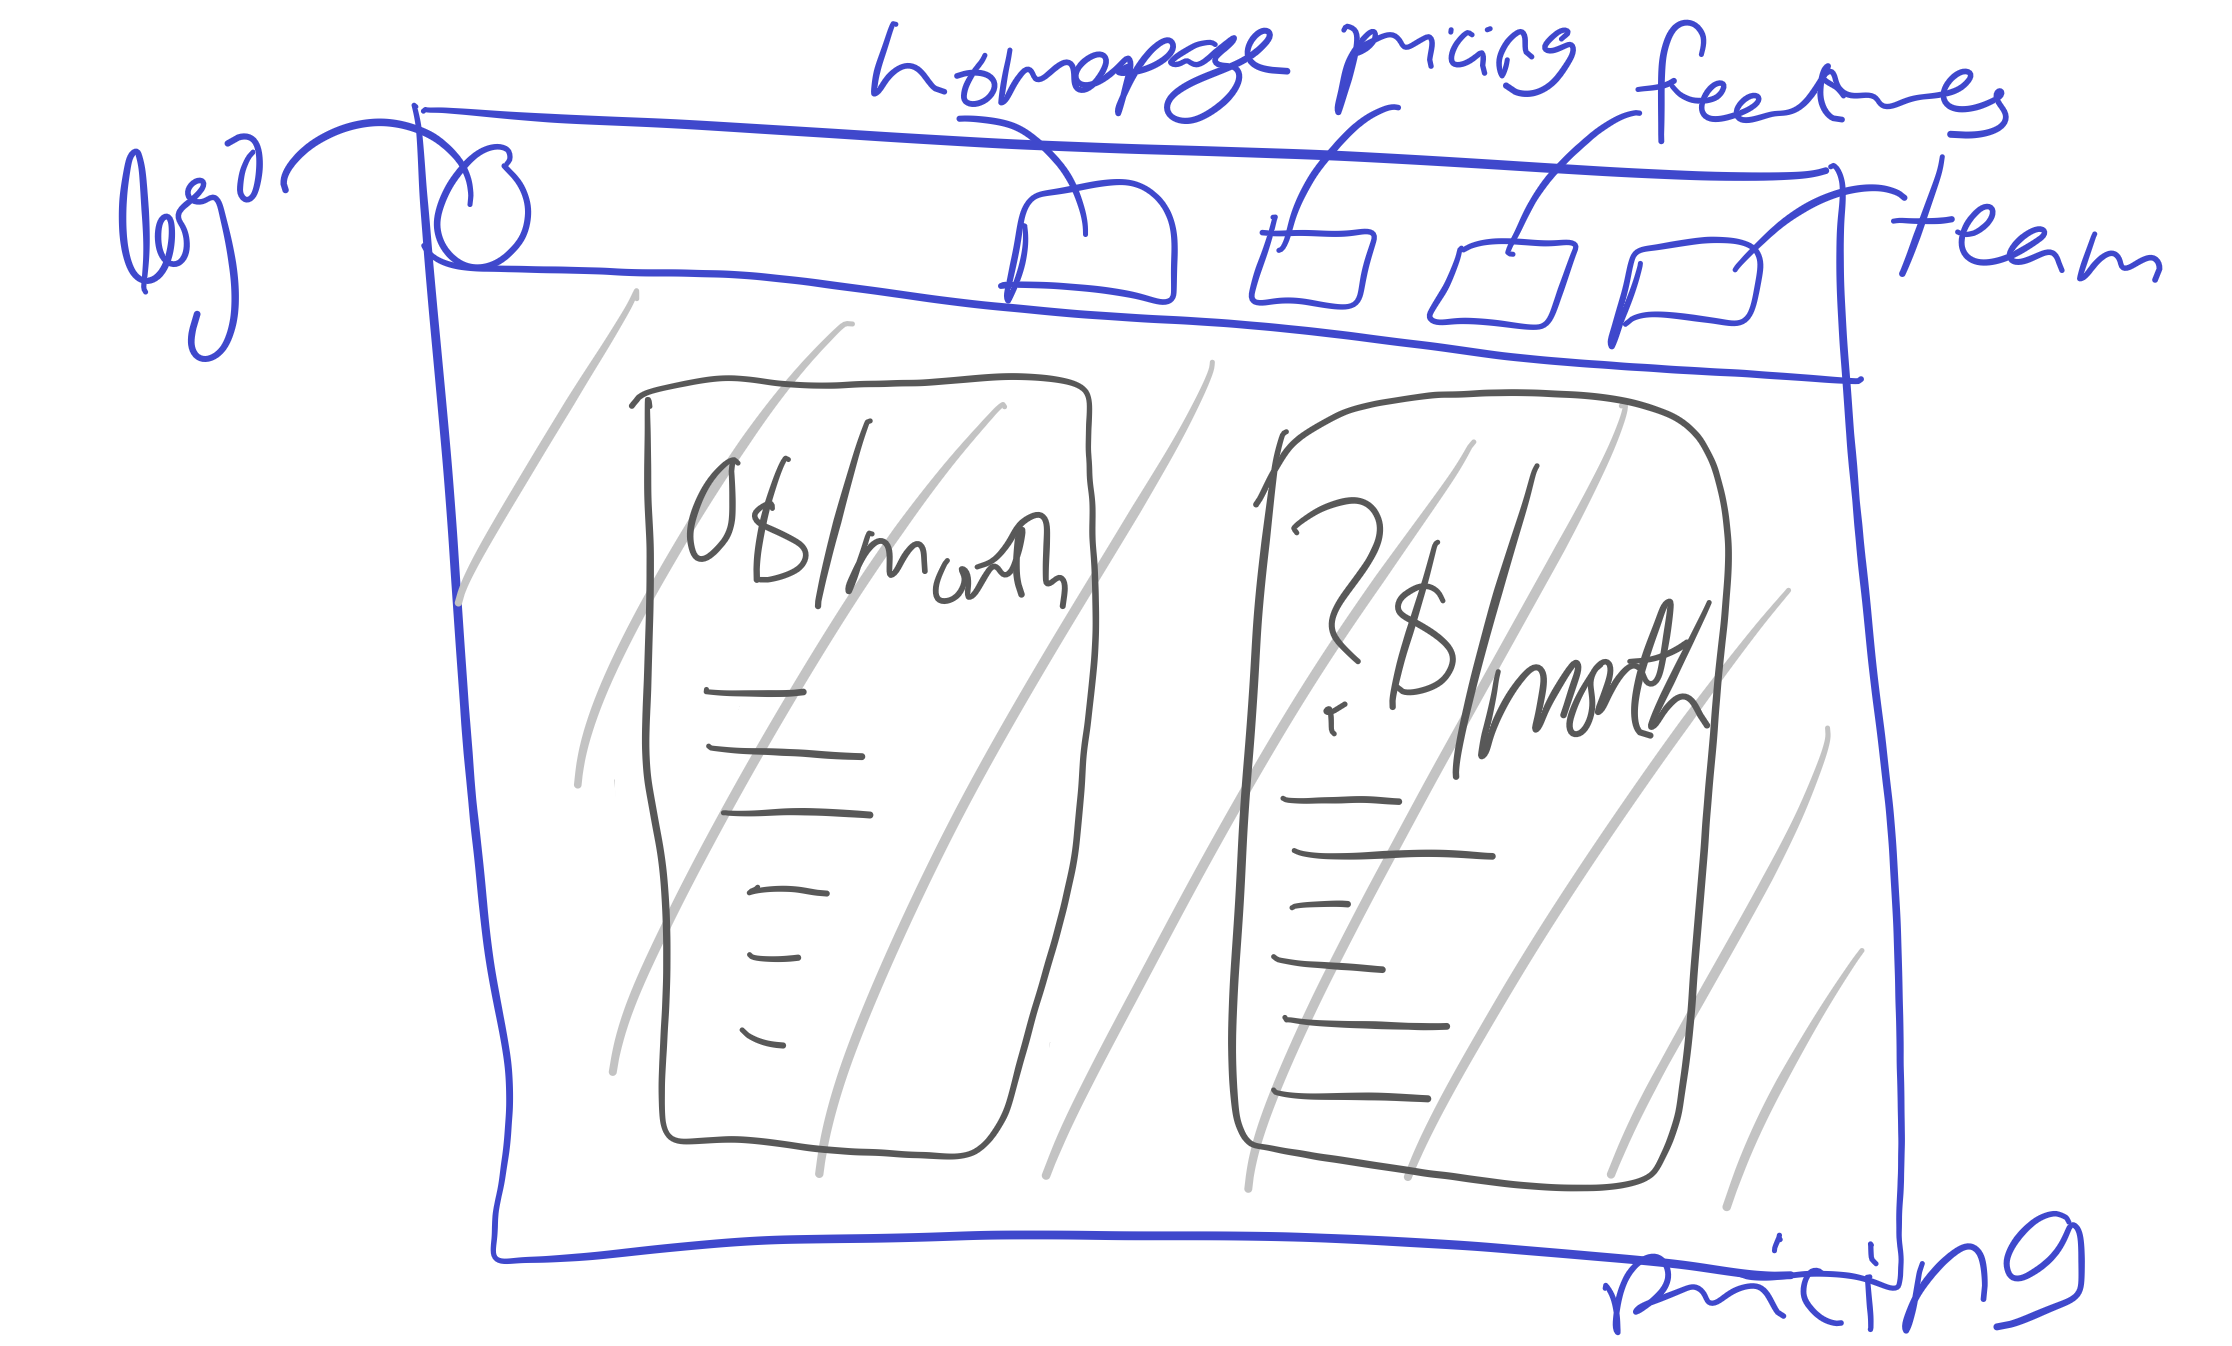 homepage pricing features
logo
team
0$/month
?$/month
pricing